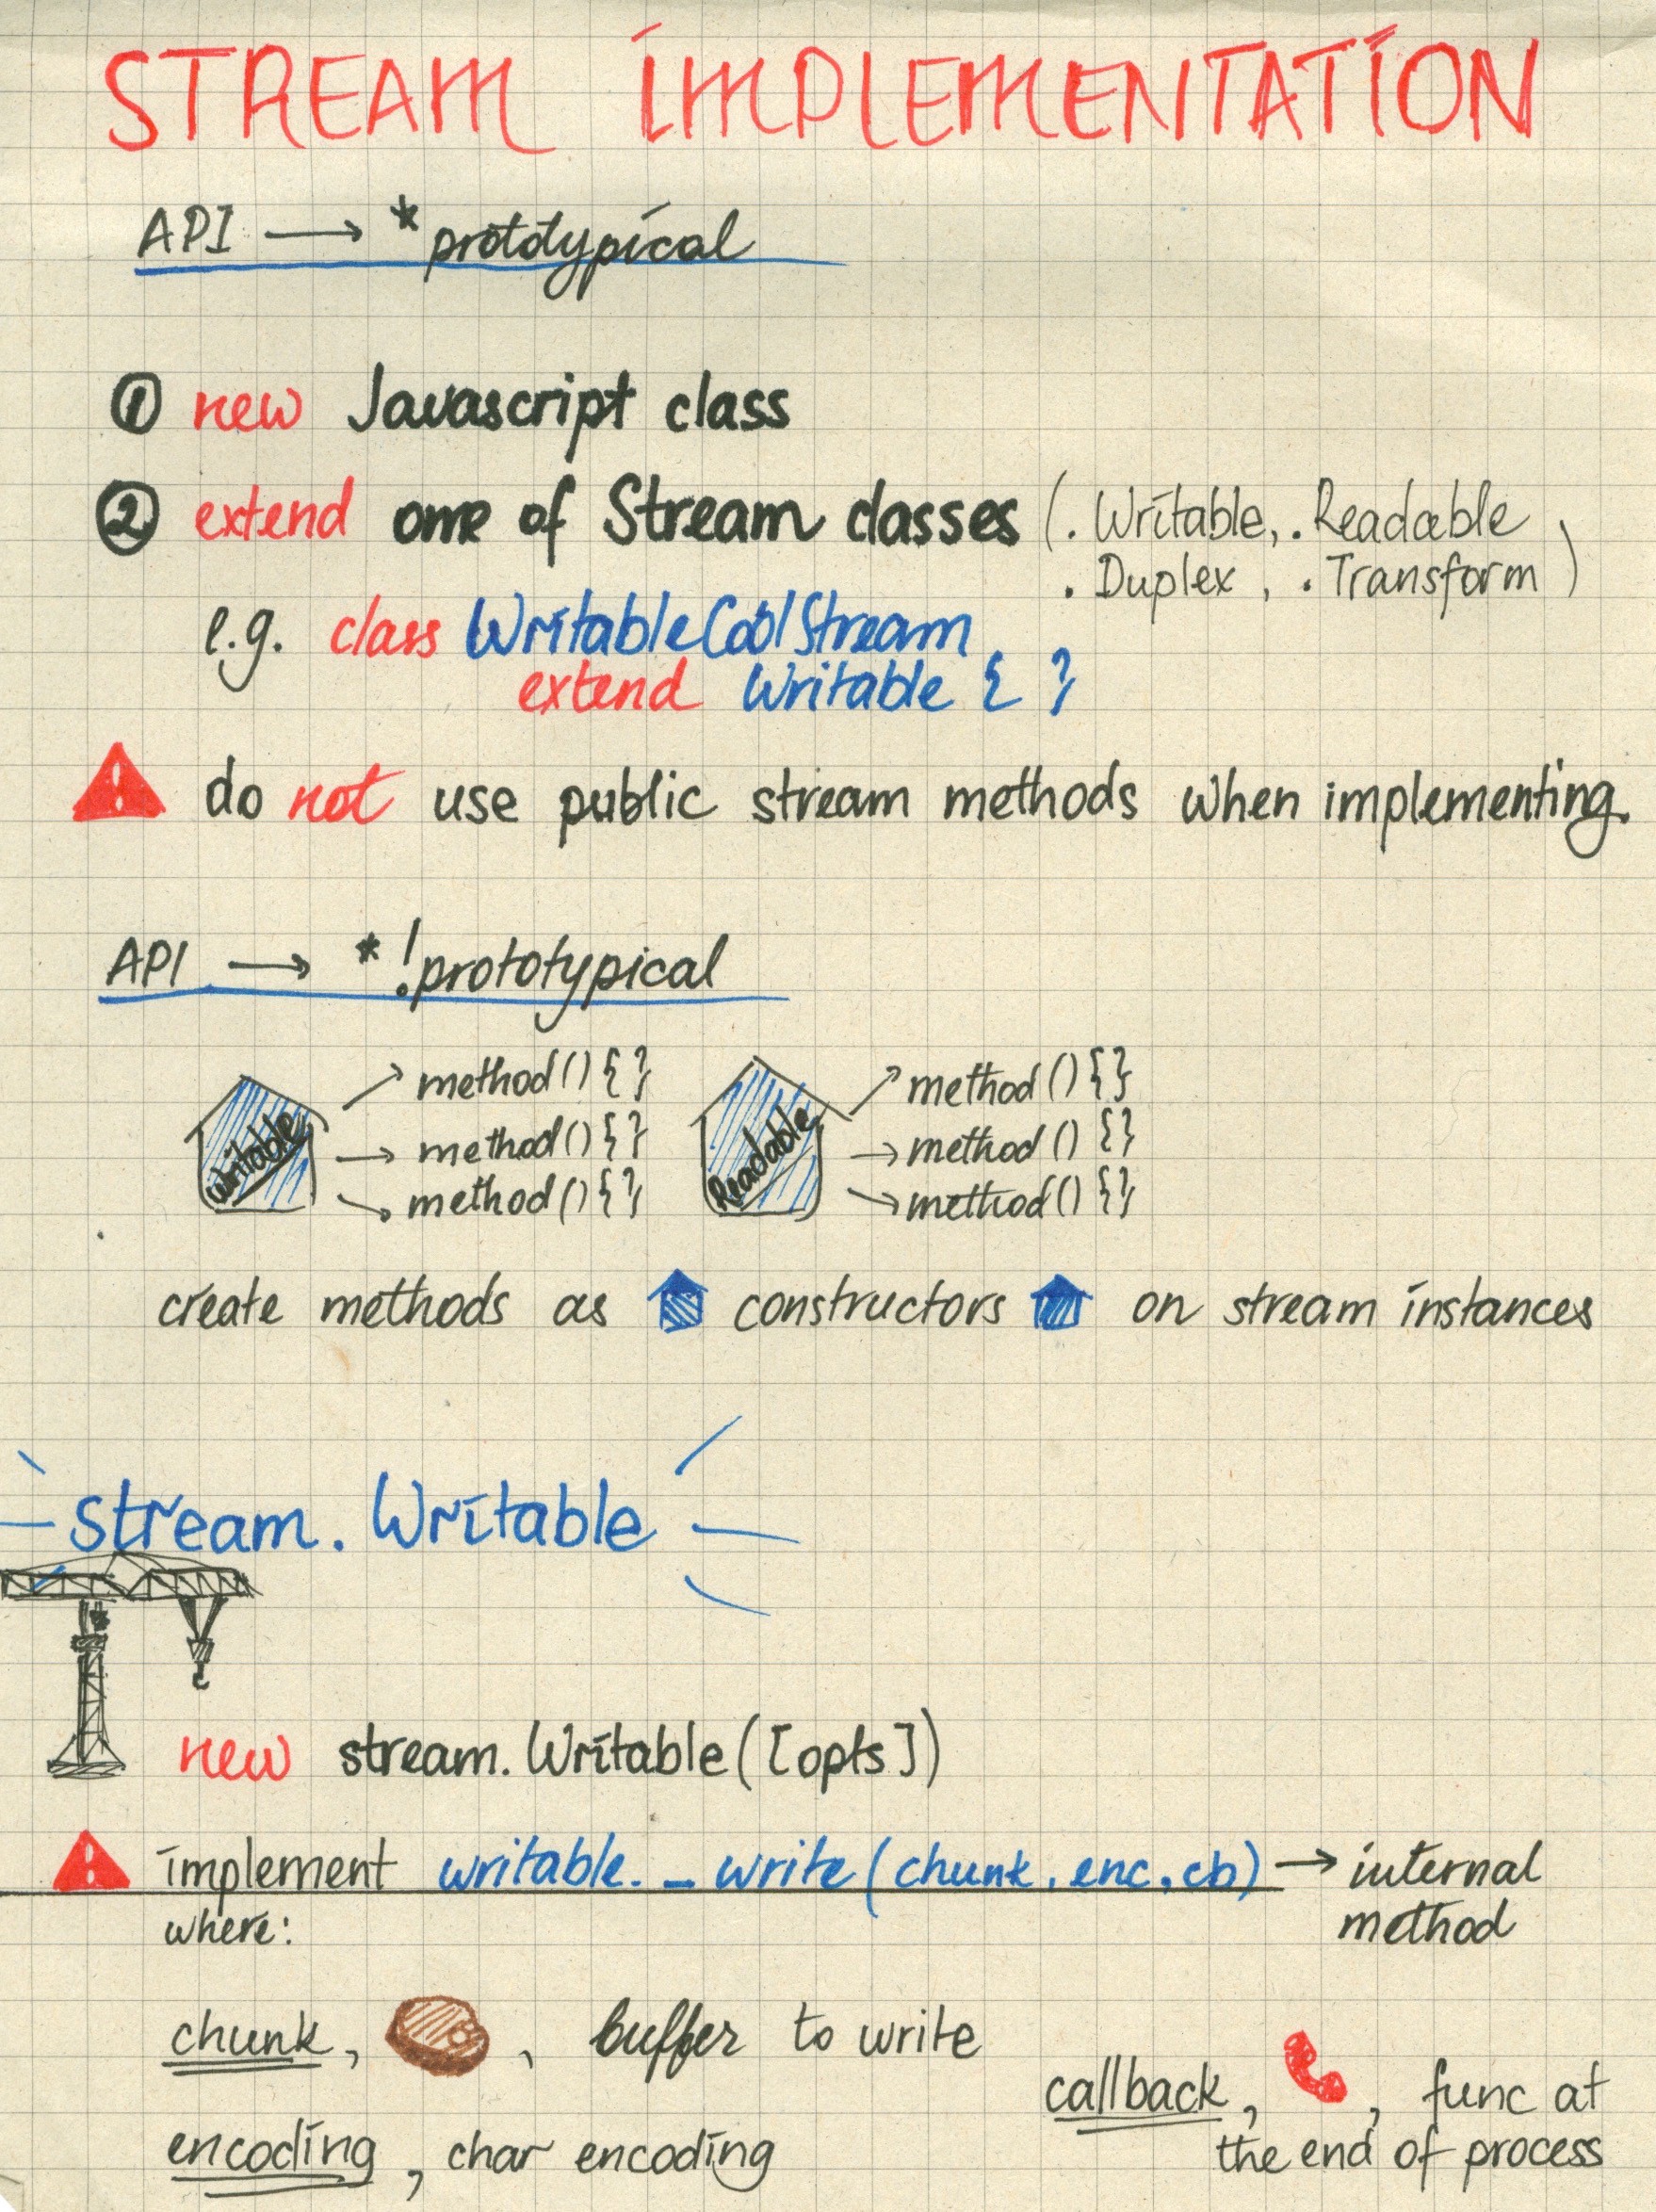 STREAM IMPLEMENTATION
API → *prototypical
① new Javascript class
② extend one of Stream classes (. Writable, . Readable
. Duplex , . Transform)
e.g. class WritableCoolStream
extend Writable { }
! do not use public stream methods when implementing.
API → * !prototypical
Writable
method() { }
method() { }
method() { }
Readable
method() { }
method() { }
method() { }
create methods as constructors on stream instances
stream. Writable
new stream. Writable([opts])
! implement writable. _ write (chunk, enc, cb) → internal
method
where:
chunk, , buffer to write
encoding, char encoding
callback, , func at
the end of process